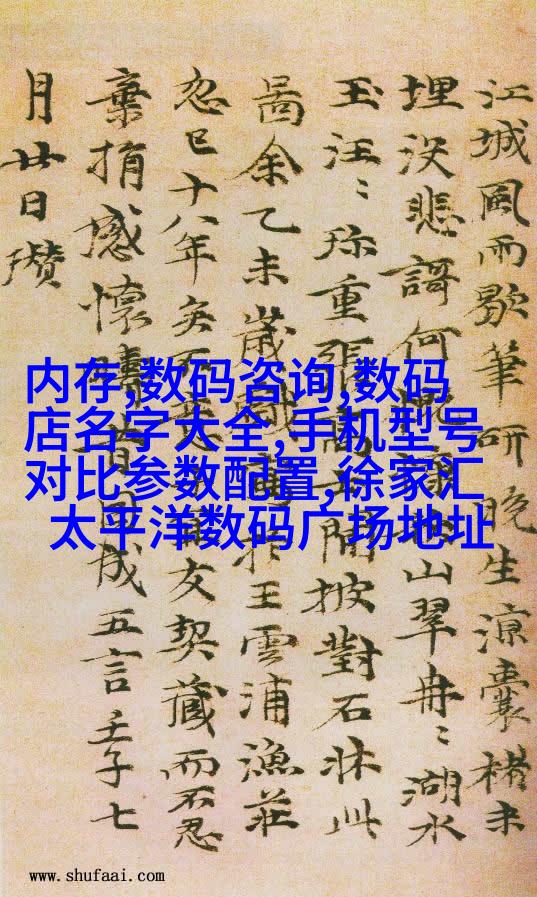 江城風雨歇筆研晚生涼囊楮未
埋没悲謌何山翠冉〻湖水
玉汪〻珎重張閒披對石牀此
啚余乙未歲戲於王雲浦漁荘
忽已十八年矣不友契藏而不忍
棄捐感懷疇昔因成五言壬子七
月廿日瓚
内存,数码咨询,数码
店名字大全,手机型号
对比参数配置,徐家汇
太平洋数码广场地址
www.shufaai.com